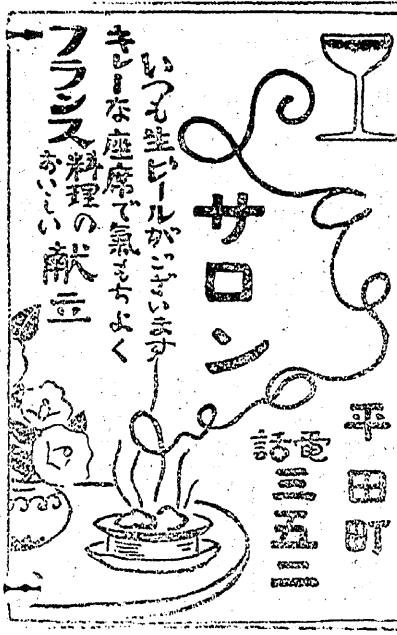 サロン
平田町
電話三五二
いつも生ビールがございます
キレーな座席で氣もちよく
フランス料理のおいしい献立